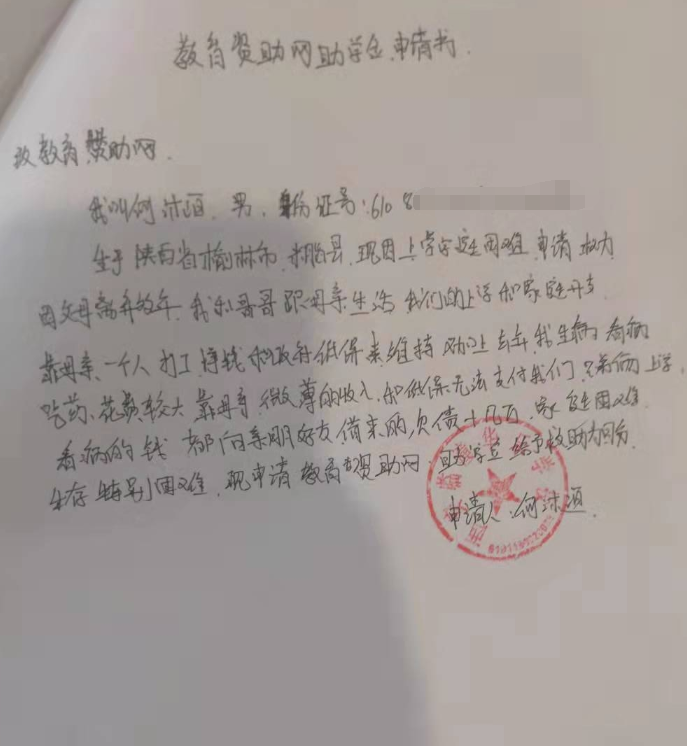 教育资助网助学金申请书.
致教育资助网.
我叫何沐洹.男.身份证号:610 8
生于陕西省榆林市.米脂县.现因上学家庭困难 申请
因父母离异数年.我和哥哥跟母亲生活 我们的上学和家庭开支
靠母亲一个人打工挣钱和政府低保来维持 去年我生病 看病
吃药、花费较大 靠母亲微薄的收入.和低保无法支付我们 上学.
看病的钱 都向亲朋好友借来的,欠债十几万.家庭困难.
生存特别困难.现申请教育资助网.助学金给予救助
申请人:何沐洹.